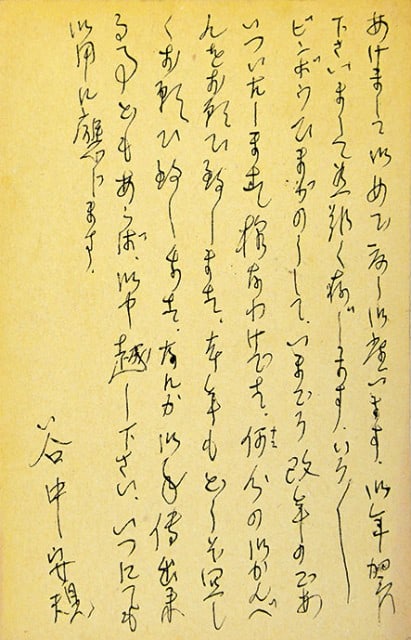 あけまして御めで度う御座います。御年賀
下さいまして有難く存じます。いろ〱
ビンボウひまがのうして、いまごろ改年のごあ
いついたします様なわけです。何分の御かんべ
んをお願ひ致します。本年もどうぞ宜し
くお願ひ致します。なんか御手傳出来
る事どもあらば、御申越し下さい。いつにても
御用に應じます。
谷中安規